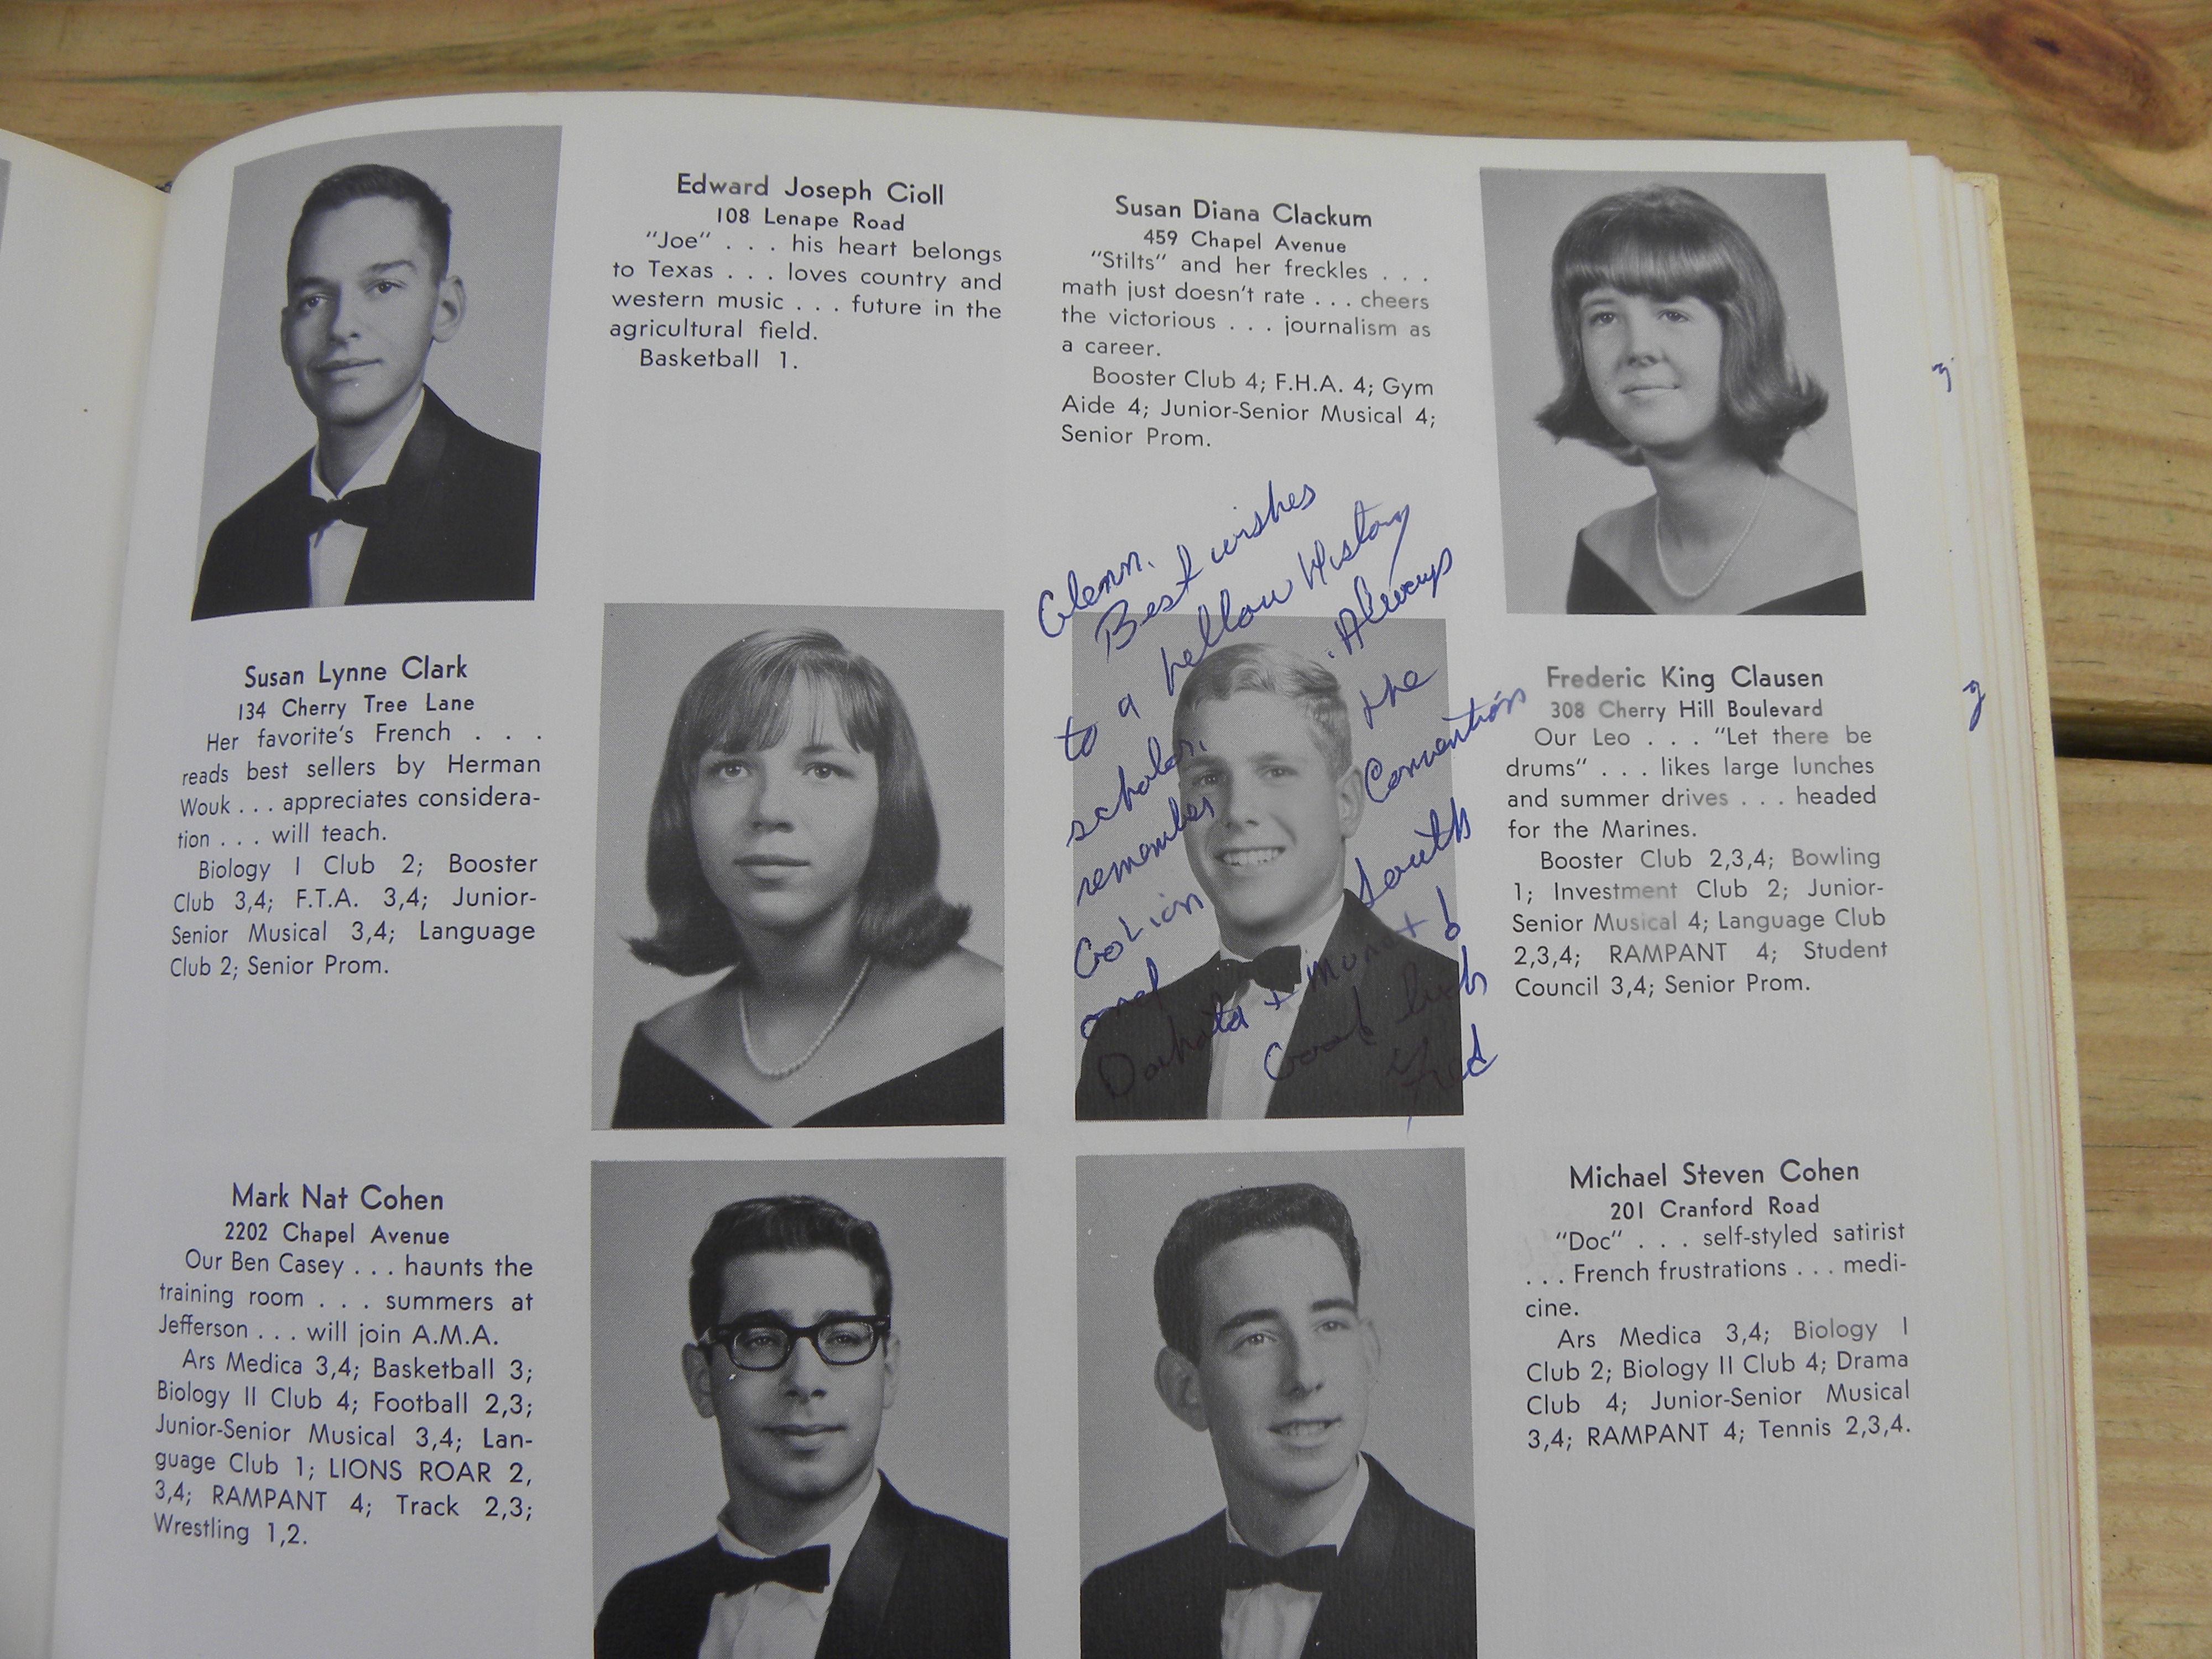 Edward Joseph Cioll
108 Lenape Road
"Joe" . . . his heart belongs
to Texas . . . loves country and
western music . . . future in the
agricultural field.
Basketball 1.
Susan Diana Clackum
459 Chapel Avenue
"Stilts" and her freckles . . .
math just doesn't rate . . . cheers
the victorious . . . journalism as
a career.
Booster Club 4; F.H.A. 4; Gym
Aide 4; Junior-Senior Musical 4;
Senior Prom.
Susan Lynne Clark
134 Cherry Tree Lane
Her favorite's French . . .
reads best sellers by Herman
Wouk . . . appreciates considera-
tion . . . will teach.
Biology I Club 2; Booster
Club 3,4; F.T.A. 3,4; Junior-
Senior Musical 3,4; Language
Club 2; Senior Prom.
Glenn.
Best wishes
to a fellow History
scholar. Always
remember the
Convention
and South
Dakota +
Good luck
Fred
Frederic King Clausen
308 Cherry Hill Boulevard
Our Leo . . . "Let there be
drums" . . . likes large lunches
and summer drives . . . headed
for the Marines.
Booster Club 2,3,4; Bowling
1; Investment Club 2; Junior-
Senior Musical 4; Language Club
2,3,4; RAMPANT 4; Student
Council 3,4; Senior Prom.
Mark Nat Cohen
2202 Chapel Avenue
Our Ben Casey . . . haunts the
training room . . . summers at
Jefferson . . . will join A.M.A.
Ars Medica 3,4; Basketball 3;
Biology II Club 4; Football 2,3;
Junior-Senior Musical 3,4; Lan-
guage Club 1; LIONS ROAR 2,
3,4; RAMPANT 4; Track 2,3;
Wrestling 1,2.
Michael Steven Cohen
201 Cranford Road
"Doc" . . . self-styled satirist
. . . French frustrations . . . medi-
cine.
Ars Medica 3,4; Biology I
Club 2; Biology II Club 4; Drama
Club 4; Junior-Senior Musical
3,4; RAMPANT 4; Tennis 2,3,4.